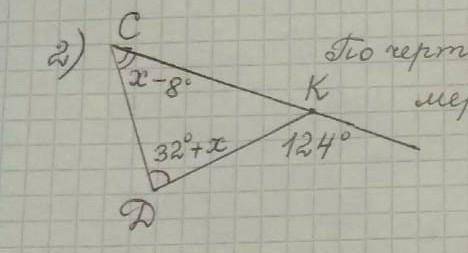 2)
C
x-8°
По черт
K
мер
32°+x
124°
D